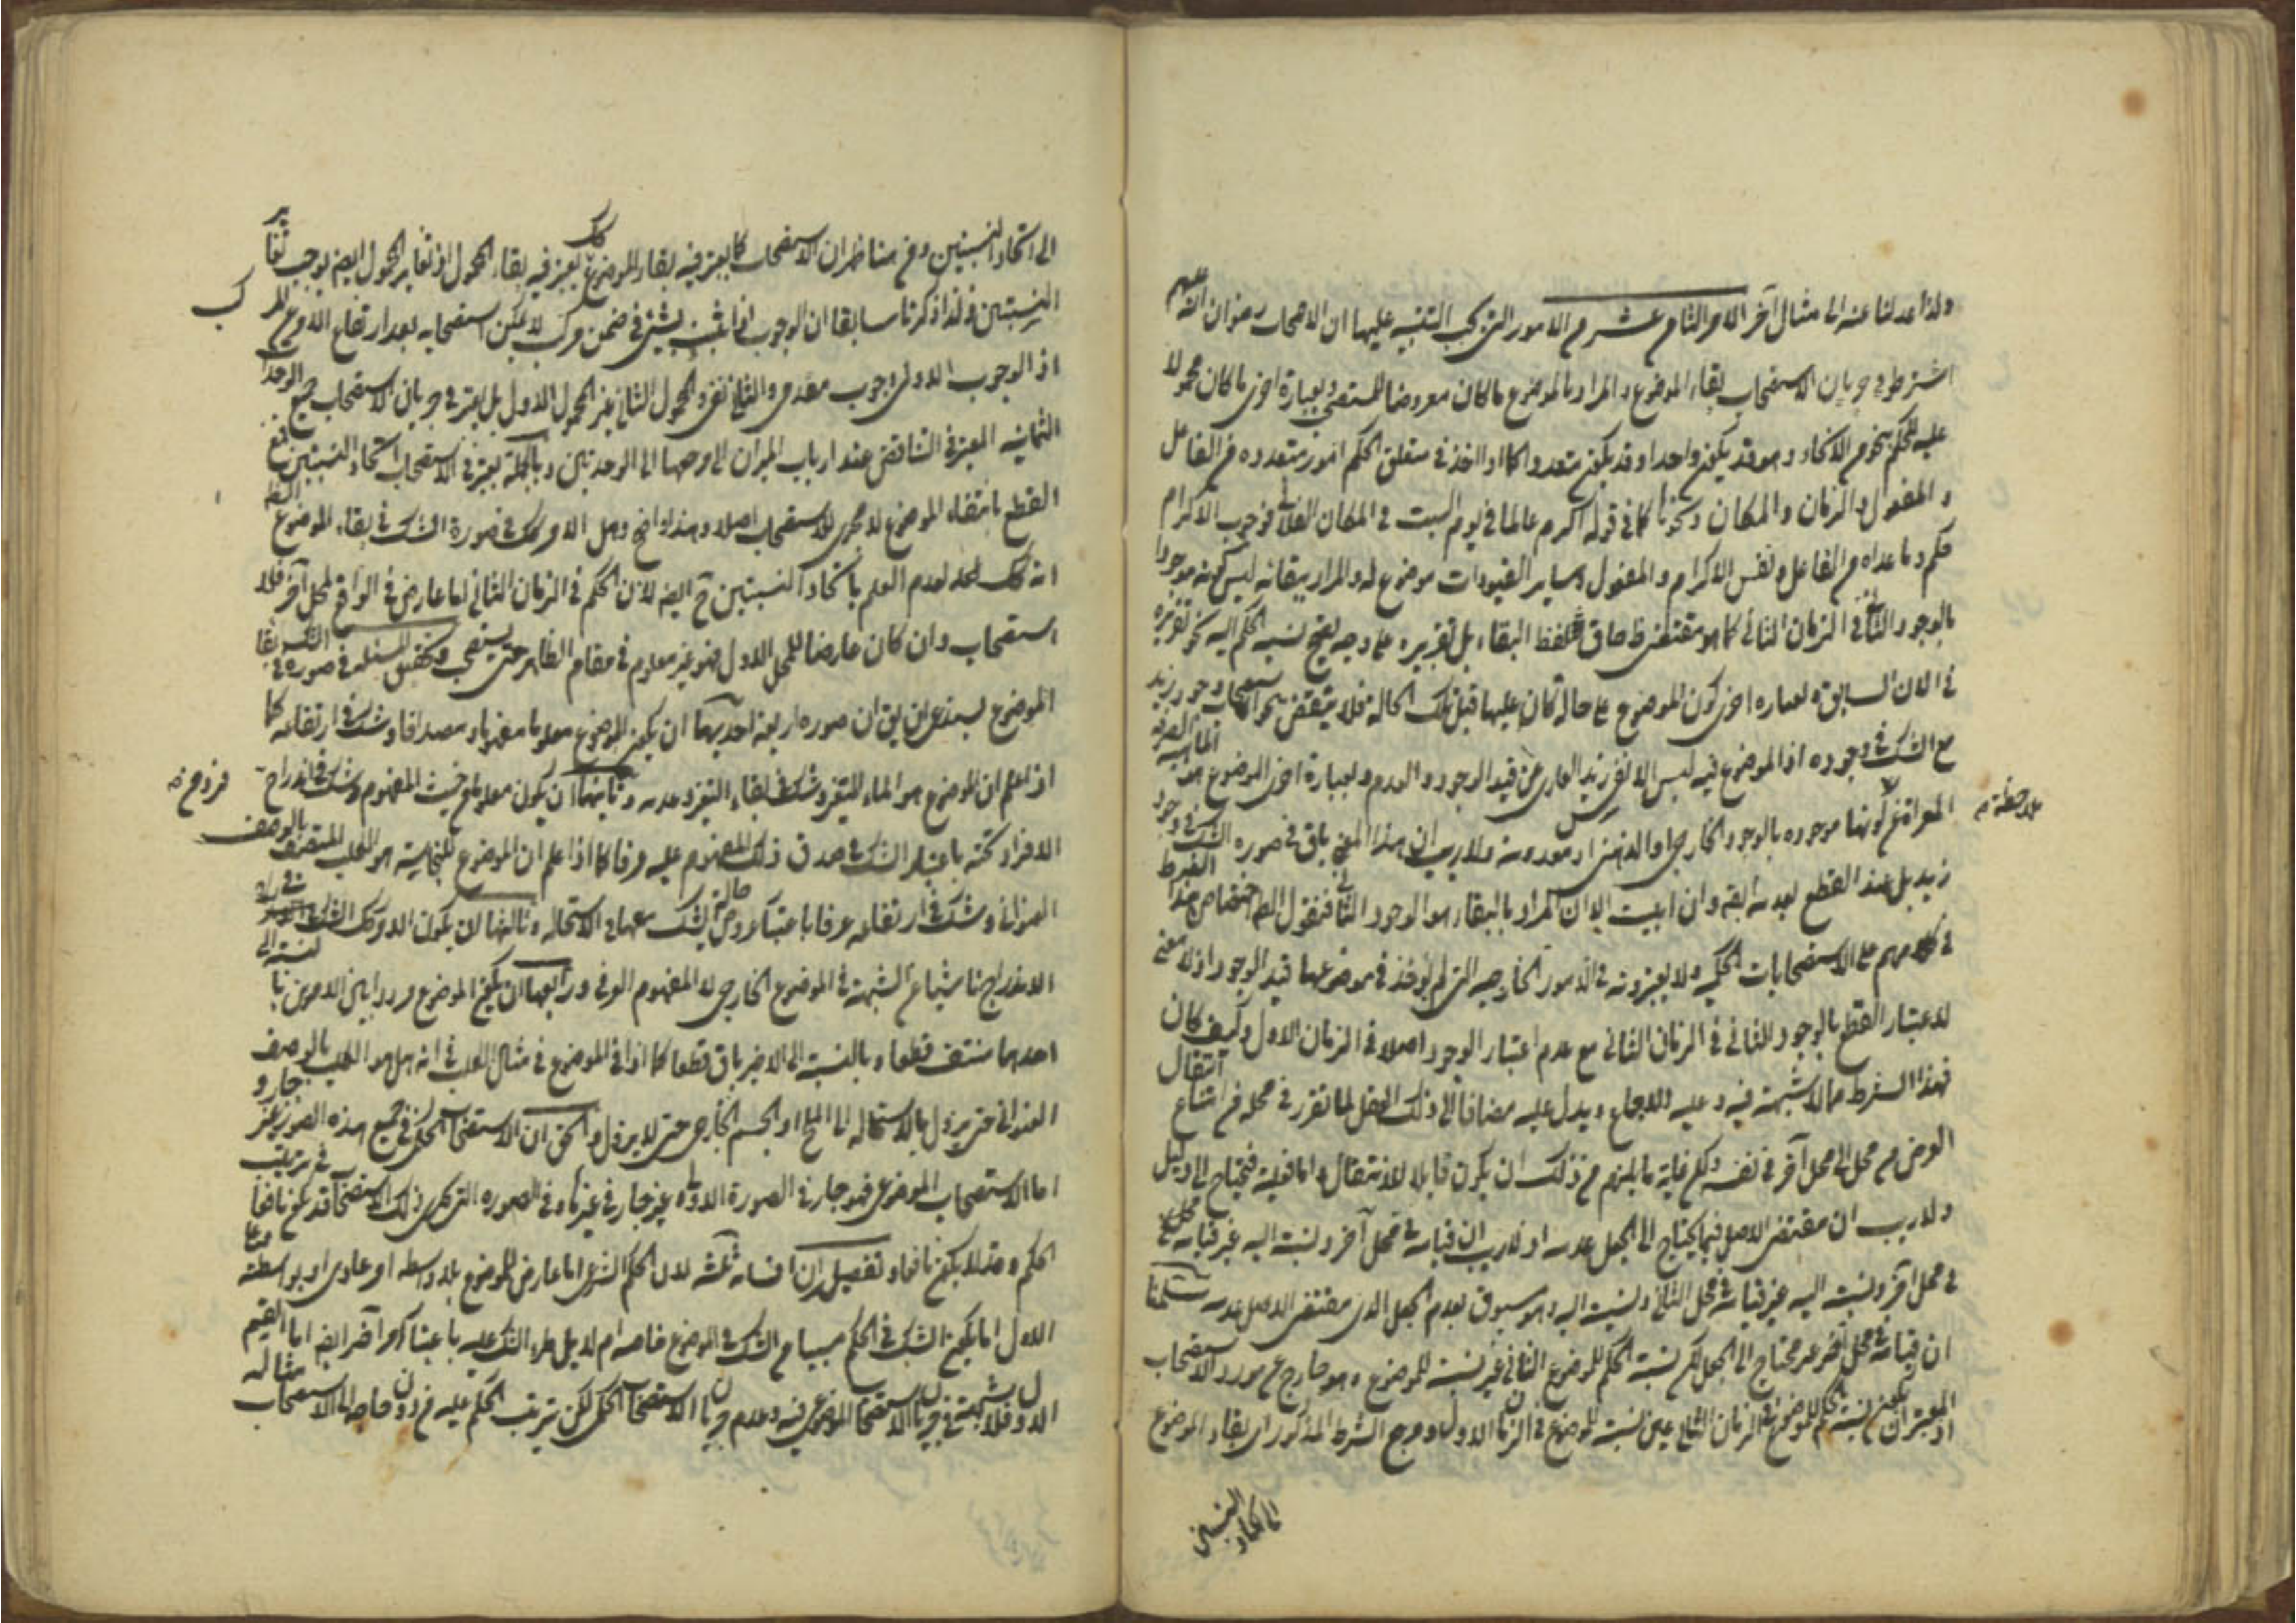 ولذا عدلنا عنه الى مثال آخر الامر الثامن عشر من الامور التى يجب التنبيه عليها ان الاصحاب رضوان الله عليهم
اشترطوا فى جريان الاستصحاب بقاء الموضوع والمراد بالموضوع ما كان معروضا للمستصحب وبعبارة اخرى ما كان محمولا
عليه للحكم بنحو من الانحاء وهو قد يكون واحدا وقد يكون متعددا كما اذا اخذ فى متعلق الحكم امور متعددة من الفاعل
والمفعول والزمان والمكان ونحوها كما فى قوله اكرم عالما فى يوم السبت فى المكان الفلانى فوجوب الاكرام
حكم وما عداه من الفاعل ونفس الاكرام والمفعول وساير القيودات موضوع له والمراد ببقائه ليس كونه موجودا
بالوجود الثانى فى الزمان الثانى كما هو مقتضى لفظ البقاء بل تقريره على وجه يصح نسبة الحكم اليه نحو تقريره
فى الان السابق وبعباره اخرى كون الموضوع على حالة كان عليها قبل تلك الحالة فلا ينتقض وجود زيد
مع الشك فى وجوده اذ الموضوع فيه ليس الا نفس زيد العارى عن قيد الوجود والعدم وبعبارة اخرى الموضوع هو الماهية
المعراة عن كونها موجوده بالوجود الخارجى او الذهنى او معدومة ولا ريب ان هذا المعنى باق فى صورة الشك فى وجود
ملاحظة
زيد بل عند القطع بعدمه ايضا وان ابيت الا ان المراد بالبقاء هو الوجود الثانى فنقول اختصاص هذا الشرط
فى كلامهم على الاستصحابات الحكمية ولا يعتبرونه فى الامور الخارجيه التى لم يؤخذ فى موضوعها قيد الوجود اذ لا معنى
لاعتبار القطع بالوجود الثانى فى الزمان الثانى مع عدم اعتبار الوجود اصلا فى الزمان الاول وكيف كان
فهذا الشرط مما لا شبهة فيه وعليه الاجماع ويدل عليه مضافا الى ذلك العقل لما تقرر فى محله من امتناع انتقال
العرض من محل الى محل آخر فى نفسه ولكن غاية ما يلزم من ذلك ان يكون قابلا للانتقال واما فعليته فيحتاج الى دليل
ولا ريب ان مقتضى الاصل فيما يحتاج الى الجعل عدمه اذ لا ريب ان قيامه فى محل آخر ونسبته اليه غير قيامه
فى محل آخر ونسبته اليه غير قيامه فى محل الثانى ونسبته اليه وهو مسبوق بعدم الجعل الذى مقتضى الاصل عدمه سلمنا
ان قيامه فى محل آخر غير محتاج الى الجعل لكن نسبة الحكم للموضوع الثانى غير نسبته للموضوع وهو خارج عن مورد الاستصحاب
اذ المعتبر ان يكون نسبة الحكم للموضوع فى الزمان الثانى عين نسبته للموضوع فى الزمان الاول ومرجع الشرط المذكور اى بقاء الموضوع
الى اتحاد النسبتين
الى اتحاد النسبتين ومن هنا ظهر ان الاستصحاب كما يعتبر فيه بقاء الموضوع كك يعتبر فيه بقاء المحمول اذ تغاير المحمول ايضا يوجب تغاير
النسبتين ولذا ذكرنا سابقا ان الوجوب اذا ثبت لشئ فى ضمن مركب لا يمكن استصحابه بعد ارتفاع
اذ الوجوب الاولى وجوب مقدمى والثانى نفسى والمحمول الثانى غير المحمول الاول بل يعتبر فى جريان الاستصحاب جميع الوحدات
الثمانيه المعتبرة فى التناقض عند ارباب الميزان الى مرجعها الى الوحدتين وبالجملة يعتبر فى الاستصحاب اتحاد النسبتين فمع
القطع بانتفاء الموضوع لا مجرى للاستصحاب اصلا وهذا واضح وهل الامر كك فى صورة الشك فى بقاء الموضوع
انه كك لعدم العلم باتحاد النسبتين ح ايضا لان الحكم فى الزمان الثانى اما عارض فى الواقع لمحل آخر فلا
استصحاب وان كان عارضا للمحل الاول فهو غير معلوم فى مقام الظاهر حتى يستصحب وتحقيق المسئله فى صورة الشك فى بقاء
الموضوع يستدعى ان يق ان صوره اربعة احديها ان يكون الموضوع معلوما مفهوما ومصداقا وشك فى ارتفاعه كما
اذا علم ان الموضوع هو الماء المتغير وشك فى بقاء التغير وعدمه وثانيها ان يكون معلوما من حيث المفهوم وشك فى اندراج
الافراد تحته باعتبار الشك فى صدق ذلك المفهوم عليه عرفا كما اذا علم ان الموضوع للنجاسة هو الكلب المتصف بالوصف
العنوانى وشك فى ارتفاعه عرفا باعتبار عروض حالة يشك معها فى الاستحاله وثالثها ان يكون الامر كك الشك فى
الاندراج ناشيا من الشبهة فى الموضوع الخارجى لا المفهوم العرفى ورابعها ان يكون الموضوع مرددا بين الامرين بالنسبة الى
احدهما منتف قطعا وبالنسبة الى الاخر باق قطعا كما اذا فى الموضوع فى مثال الكلب فى انه هل هو الكلب بالوصف
العنوانى حتى يزول بالاستحاله الى الملح او الجسم الخارجى حتى لا يزول والحق ان الاستصحاب الحكمى فى جميع هذه الصور غير جار و
اما الاستصحاب الموضوعى فهو جار فى الصورة الاولى غير جار فى غيرها وفى الصوره التى يجرى ذلك الاستصحاب قد يكون نافعا فى ترتيب
الحكم وقد لا يكون نافعا وتفصيله ان اقسامه ثلثه لان الحكم الشرعى اما عارض للموضوع بلا واسطه او عادى او بواسطه
الاول اما يكون الشك فى الحكم مسببا من الشك فى الموضوع خاصه ام لا بل طرء الشك عليه باعتبار امر آخر ايضا اما القسم
الاول فلا شبهة فى جريان الاستصحاب الموضوعى فيه وعدم جريان الاستصحاب الحكمى لكن ترتب الحكم عليه من دون حاجة الى الاستصحاب مثاله